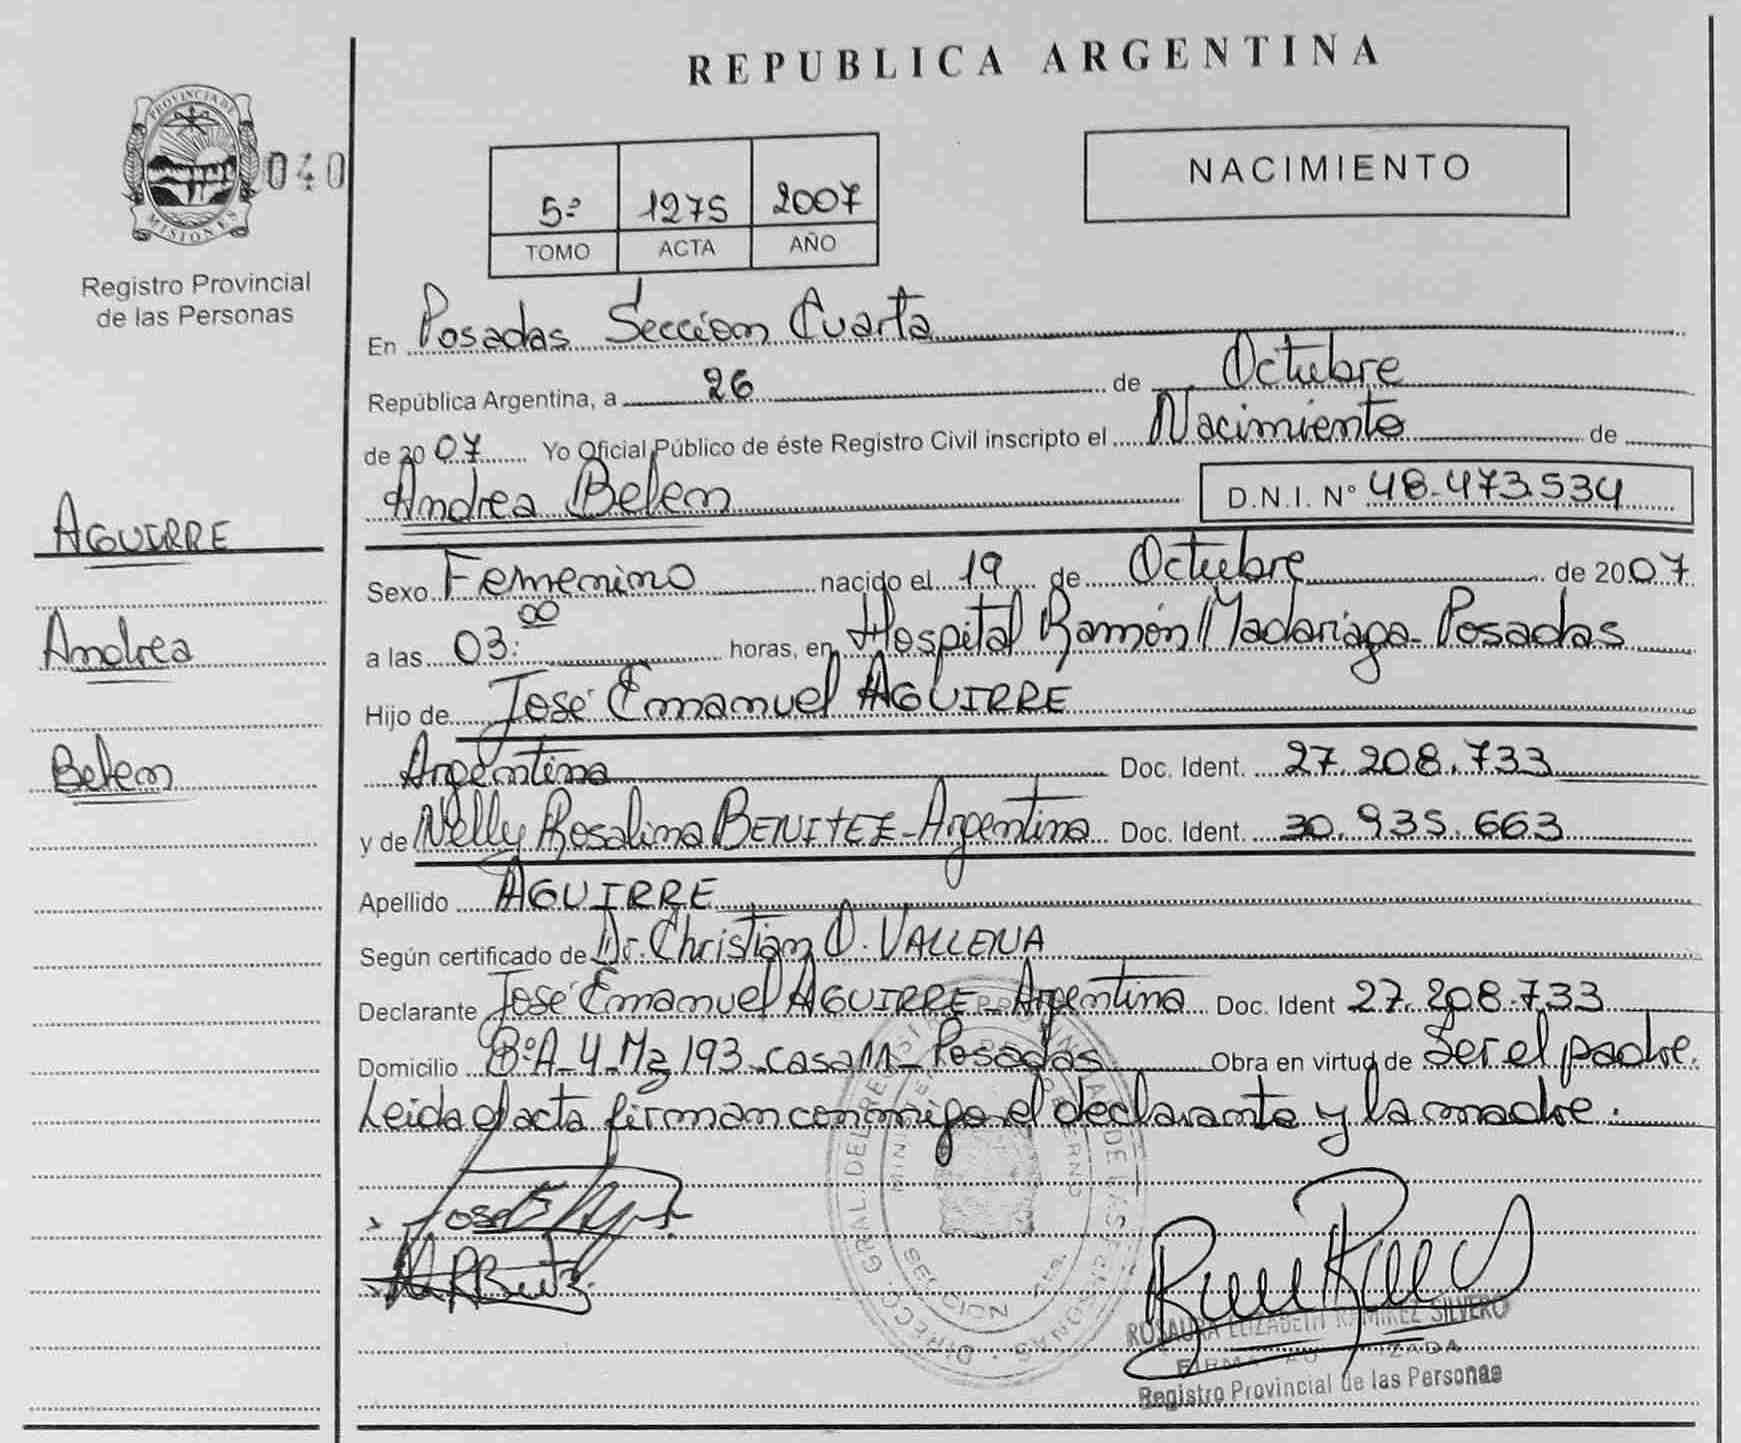 REPUBLICA ARGENTINA
PROVINCIA DE
MISIONES
040
Registro Provincial
de las Personas
5º 1275 2007
TOMO ACTA AÑO
NACIMIENTO
En Posadas Seccion Cuarta
República Argentina, a 26 de Octubre
de 2007 Yo Oficial Público de éste Registro Civil inscripto el Nacimiento de
Andrea Belen D.N.I. Nº 48.473.534
AGUIRRE
Andrea
Belen
Sexo Femenino nacido el 19 de Octubre de 2007
a las 03:00 horas, en Hospital Ramón Madariaga - Posadas
Hijo de José Emanuel AGUIRRE
Argentina Doc. Ident. 27.208.733
y de Nelly Rosalina BENITEZ - Argentina Doc. Ident. 30.935.663
Apellido AGUIRRE
Según certificado de Dr. Christian O. VALLENA
Declarante José Emanuel AGUIRRE - Argentina Doc. Ident 27.208.733
Domicilio BºA-4-Mz 193-casa11- Posadas Obra en virtud de Ser el padre.
Leida el acta firman conmigo el declarante y la madre.
ROSAURA ELIZABETH RAMIREZ SILVERO
Registro Provincial de las Personas